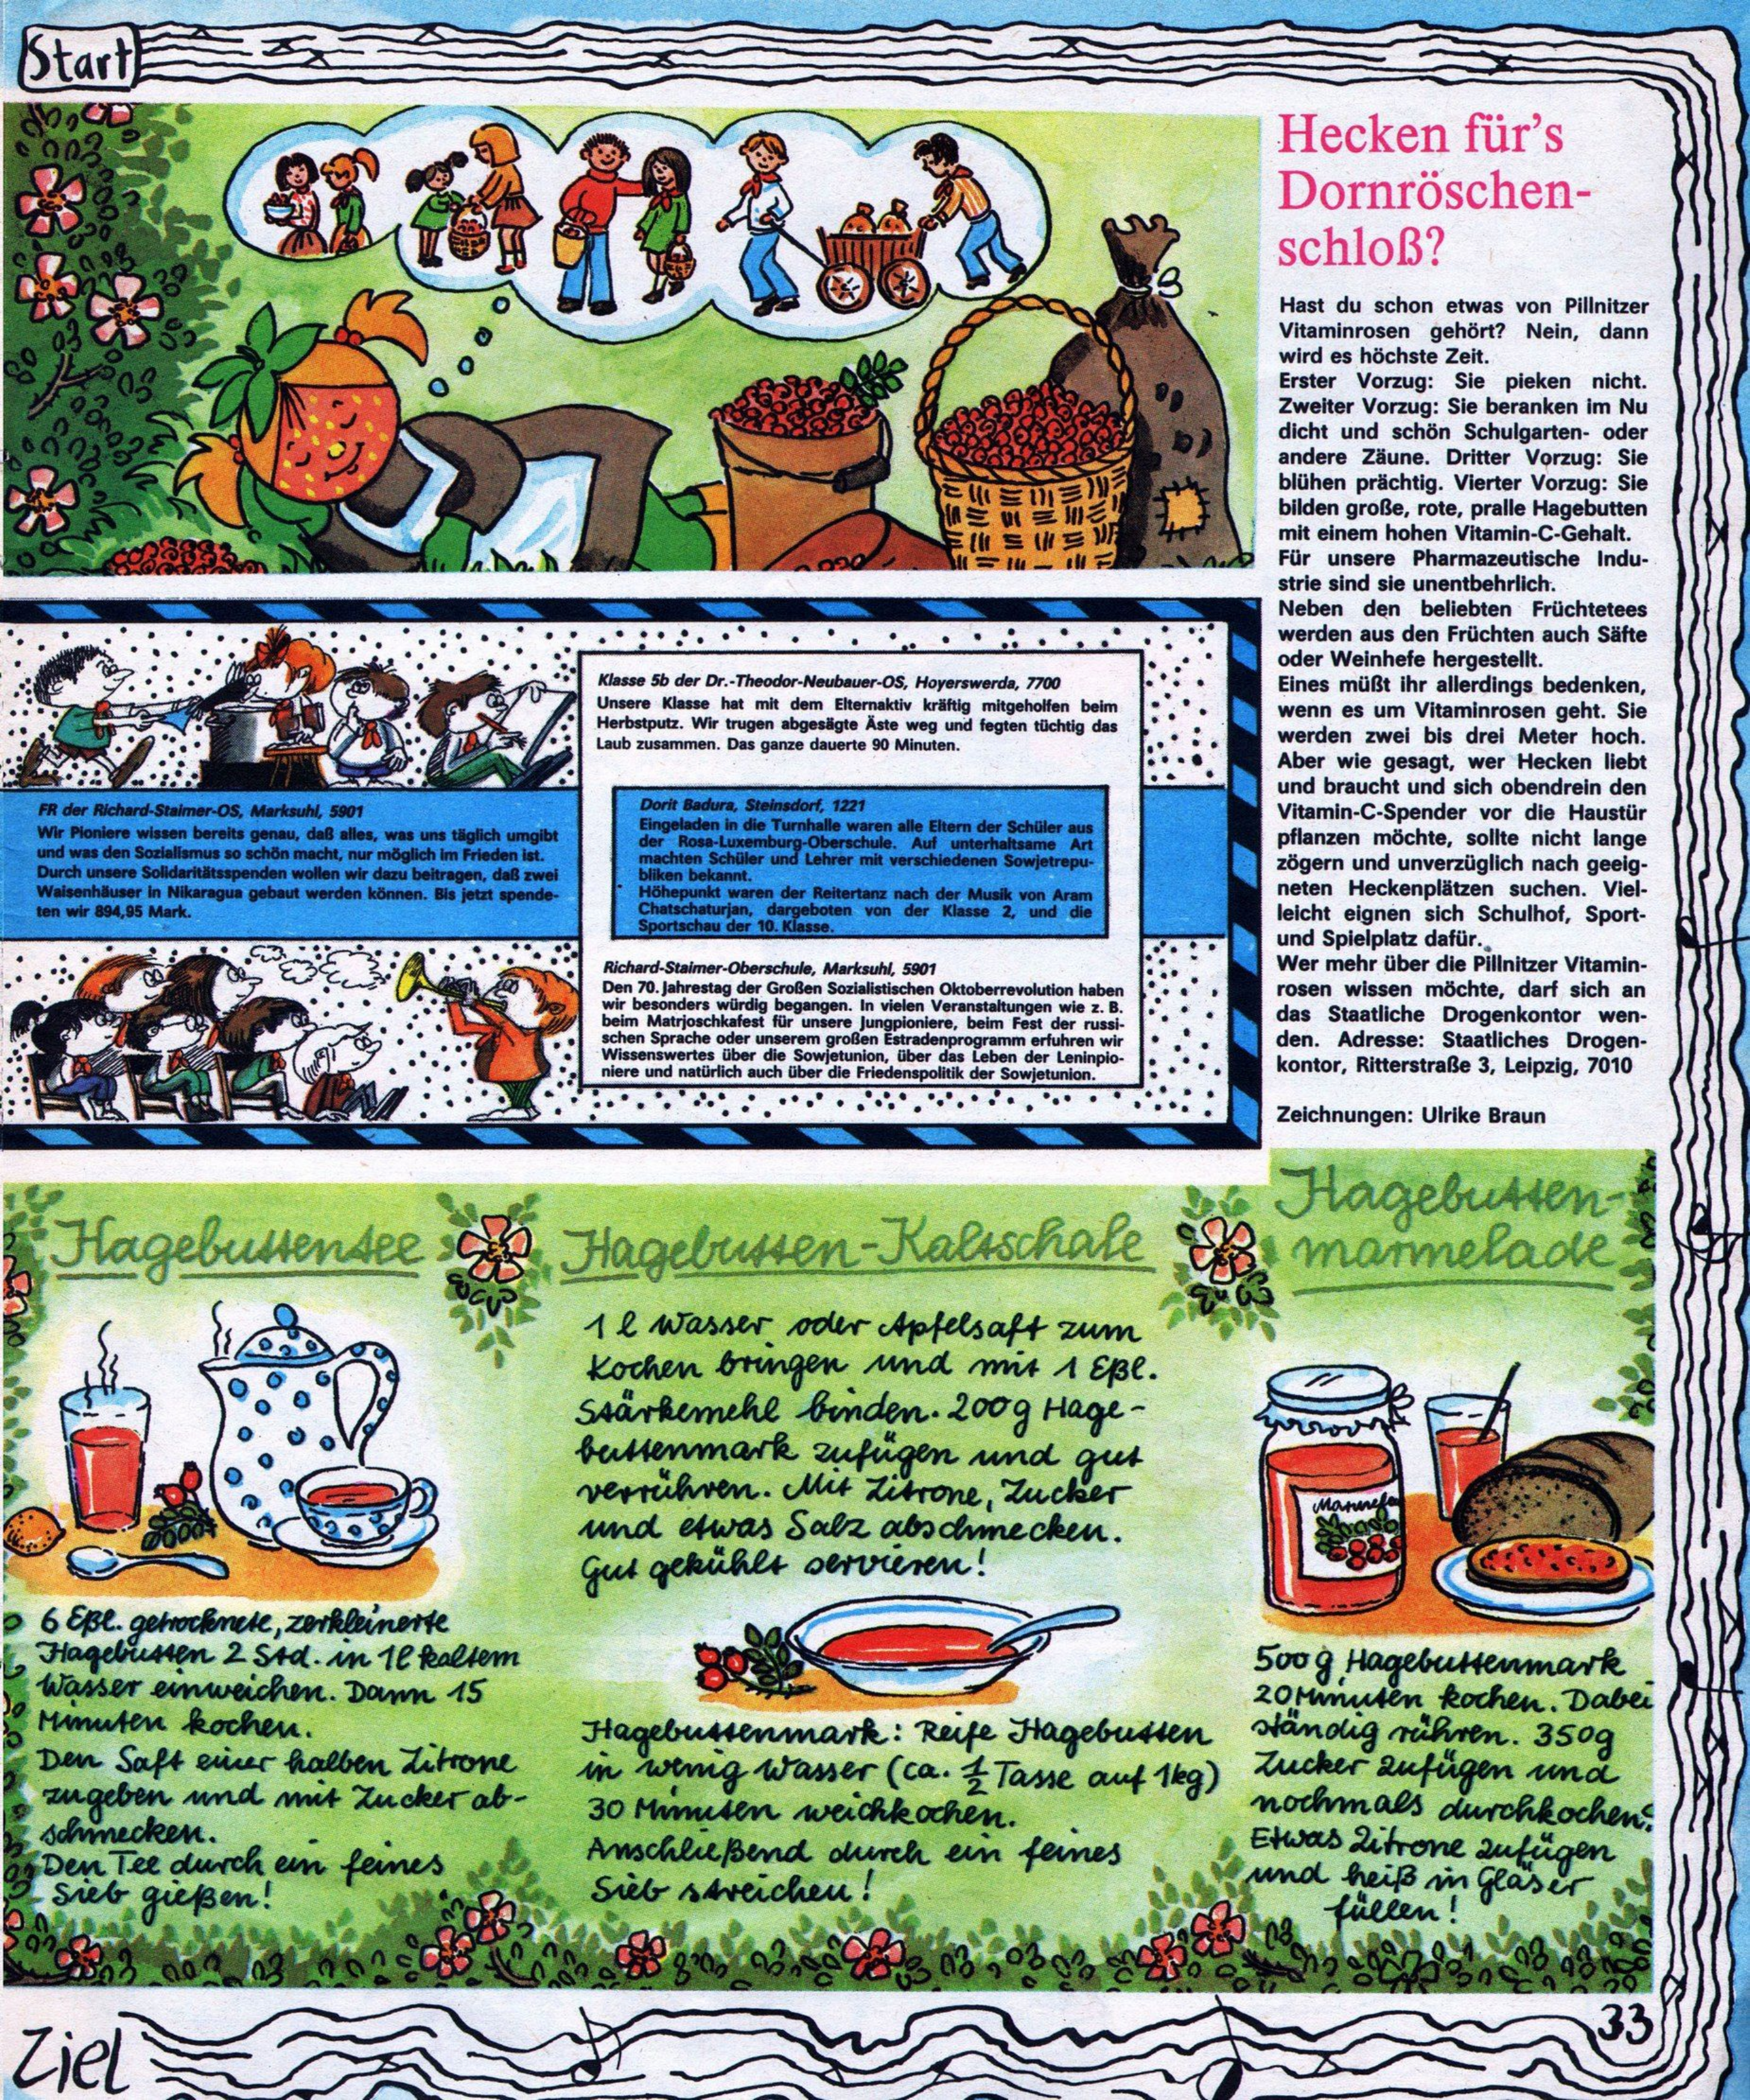 Start
Hecken für's
Dornröschen-
schloß?
Hast du schon etwas von Pillnitzer
Vitaminrosen gehört? Nein, dann
wird es höchste Zeit.
Erster Vorzug: Sie pieken nicht.
Zweiter Vorzug: Sie beranken im Nu
dicht und schön Schulgarten- oder
andere Zäune. Dritter Vorzug: Sie
blühen prächtig. Vierter Vorzug: Sie
bilden große, rote, pralle Hagebutten
mit einem hohen Vitamin-C-Gehalt.
Für unsere Pharmazeutische Indu-
strie sind sie unentbehrlich.
Neben den beliebten Früchtetees
werden aus den Früchten auch Säfte
oder Weinhefe hergestellt.
Eines müßt ihr allerdings bedenken,
wenn es um Vitaminrosen geht. Sie
werden zwei bis drei Meter hoch.
Aber wie gesagt, wer Hecken liebt
und braucht und sich obendrein den
Vitamin-C-Spender vor die Haustür
pflanzen möchte, sollte nicht lange
zögern und unverzüglich nach geeig-
neten Heckenplätzen suchen. Viel-
leicht eignen sich Schulhof, Sport-
und Spielplatz dafür.
Wer mehr über die Pillnitzer Vitamin-
rosen wissen möchte, darf sich an
das Staatliche Drogenkontor wen-
den. Adresse: Staatliches Drogen-
kontor, Ritterstraße 3, Leipzig, 7010
Zeichnungen: Ulrike Braun
FR der Richard-Staimer-OS, Marksuhl, 5901
Wir Pioniere wissen bereits genau, daß alles, was uns täglich umgibt
und was den Sozialismus so schön macht, nur möglich im Frieden ist.
Durch unsere Solidaritätsspenden wollen wir dazu beitragen, daß zwei
Waisenhäuser in Nikaragua gebaut werden können. Bis jetzt spende-
ten wir 894,95 Mark.
Klasse 5b der Dr.-Theodor-Neubauer-OS, Hoyerswerda, 7700
Unsere Klasse hat mit dem Elternaktiv kräftig mitgeholfen beim
Herbstputz. Wir trugen abgesägte Äste weg und fegten tüchtig das
Laub zusammen. Das ganze dauerte 90 Minuten.
Dorit Badura, Steinsdorf, 1221
Eingeladen in die Turnhalle waren alle Eltern der Schüler aus
der Rosa-Luxemburg-Oberschule. Auf unterhaltsame Art
machten Schüler und Lehrer mit verschiedenen Sowjetrepu-
bliken bekannt.
Höhepunkt waren der Reitertanz nach der Musik von Aram
Chatschaturjan, dargeboten von der Klasse 2, und die
Sportschau der 10. Klasse.
Richard-Staimer-Oberschule, Marksuhl, 5901
Den 70. Jahrestag der Großen Sozialistischen Oktoberrevolution haben
wir besonders würdig begangen. In vielen Veranstaltungen wie z. B.
beim Matrjoschkafest für unsere Jungpioniere, beim Fest der russi-
schen Sprache oder unserem großen Estradenprogramm erfuhren wir
Wissenswertes über die Sowjetunion, über das Leben der Leninpio-
niere und natürlich auch über die Friedenspolitik der Sowjetunion.
Hagebuttentee
6 Eßl. getrocknete, zerkleinerte
Hagebutten 2 Std. in 1l kaltem
Wasser einweichen. Dann 15
Minuten kochen.
Den Saft einer halben Zitrone
zugeben und mit Zucker ab-
schmecken.
Den Tee durch ein feines
Sieb gießen!
Hagebutten-Kaltschale
1 l Wasser oder Apfelsaft zum
Kochen bringen und mit 1 Eßl.
Stärkemehl binden. 200g Hage-
buttenmark zufügen und gut
verrühren. Mit Zitrone, Zucker
und etwas Salz abschmecken.
Gut gekühlt servieren!
Hagebuttenmark: Reife Hagebutten
in wenig Wasser (ca. 1/2 Tasse auf 1kg)
30 Minuten weichkochen.
Anschließend durch ein feines
Sieb streichen!
Hagebutten-
marmelade
500g Hagebuttenmark
20 Minuten kochen. Dabei
ständig rühren. 350g
Zucker zufügen und
nochmals durchkochen.
Etwas Zitrone zufügen
und heiß in Gläser
füllen!
33
Ziel